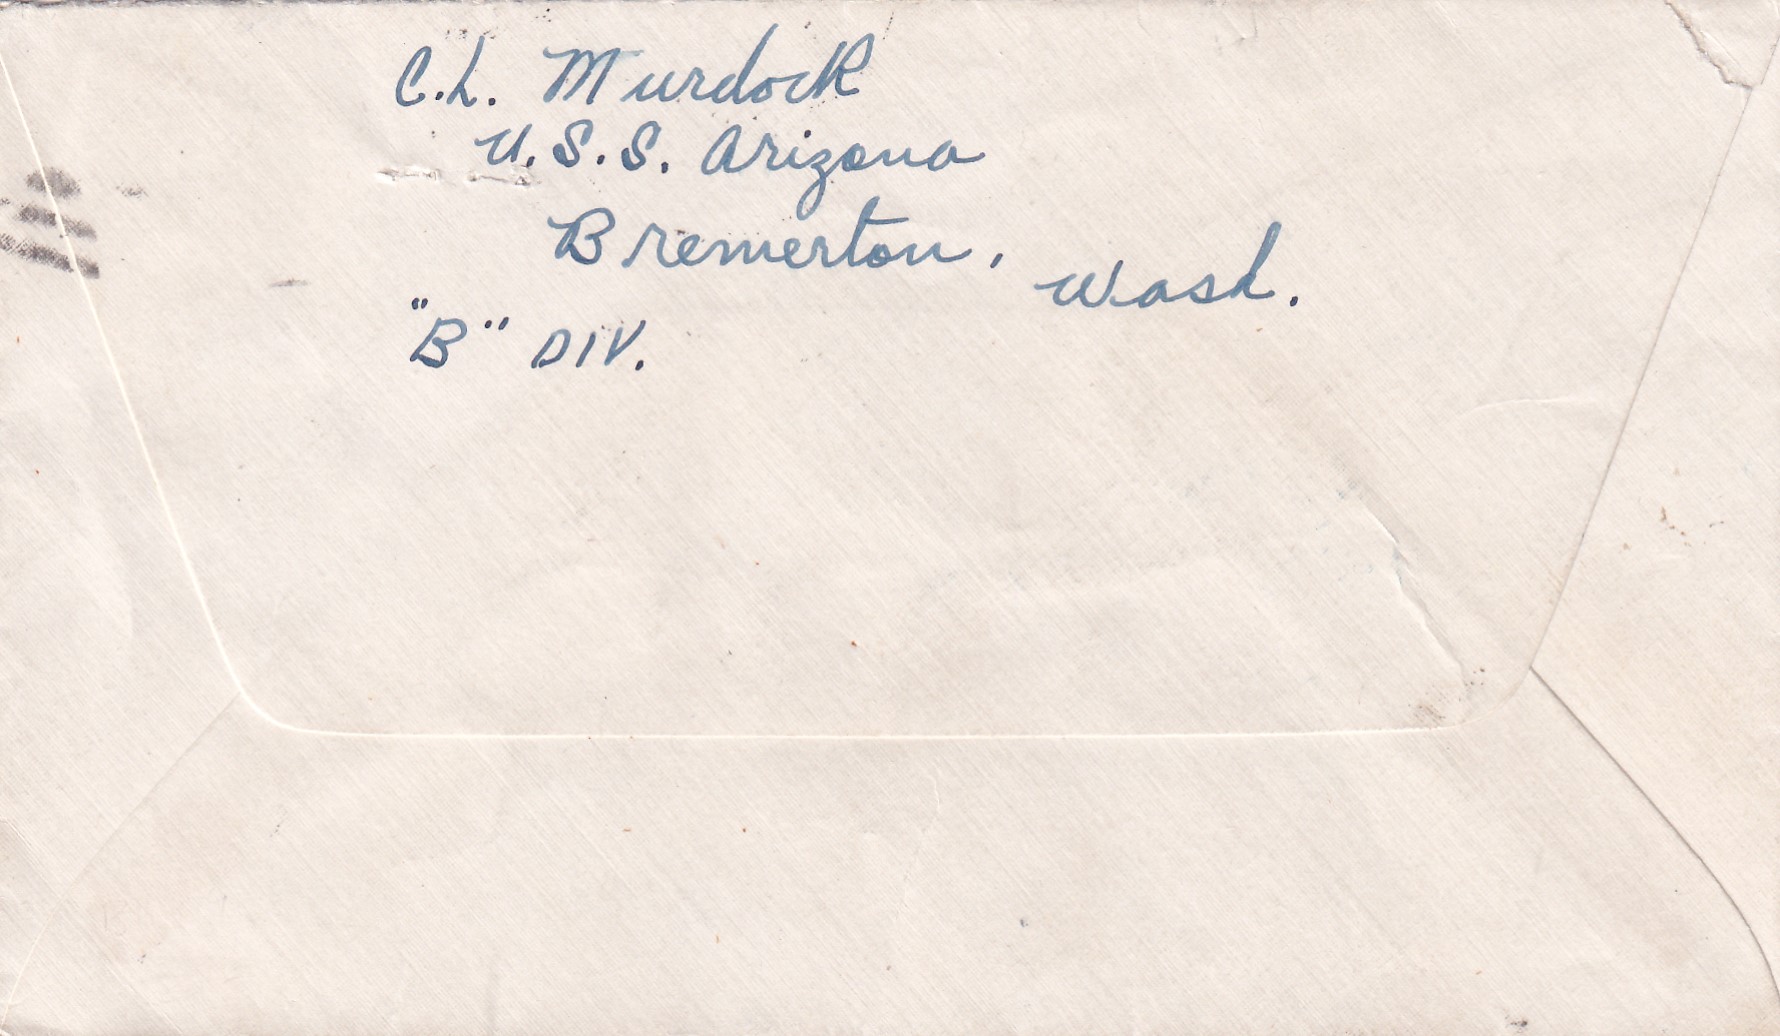 C.L. Murdock
U.S.S. Arizona
Bremerton, Wash.
"B" DIV.